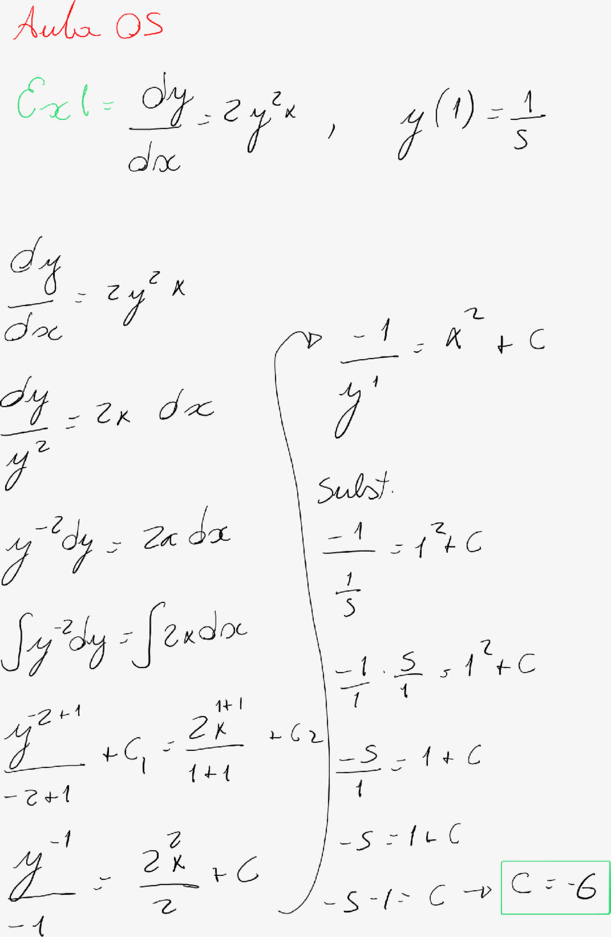 Aula 05
Ex1= dy/dx = 2y²x , y(1) = 1/5
dy/dx = 2y²x
dy/y² = 2x dx
y⁻²dy = 2x dx
∫y⁻²dy = ∫2xdx
y⁻²⁺¹/-2+1 + C₁ = 2x¹⁺¹/1+1 + C₂
y⁻¹/-1 = 2x²/2 + C
→ -1/y¹ = x² + C
Subst.
-1/(1/5) = 1² + C
-1/1 · 5/1 = 1² + C
-5/1 = 1 + C
-5 = 1 + C
-5 -1 = C → C = -6